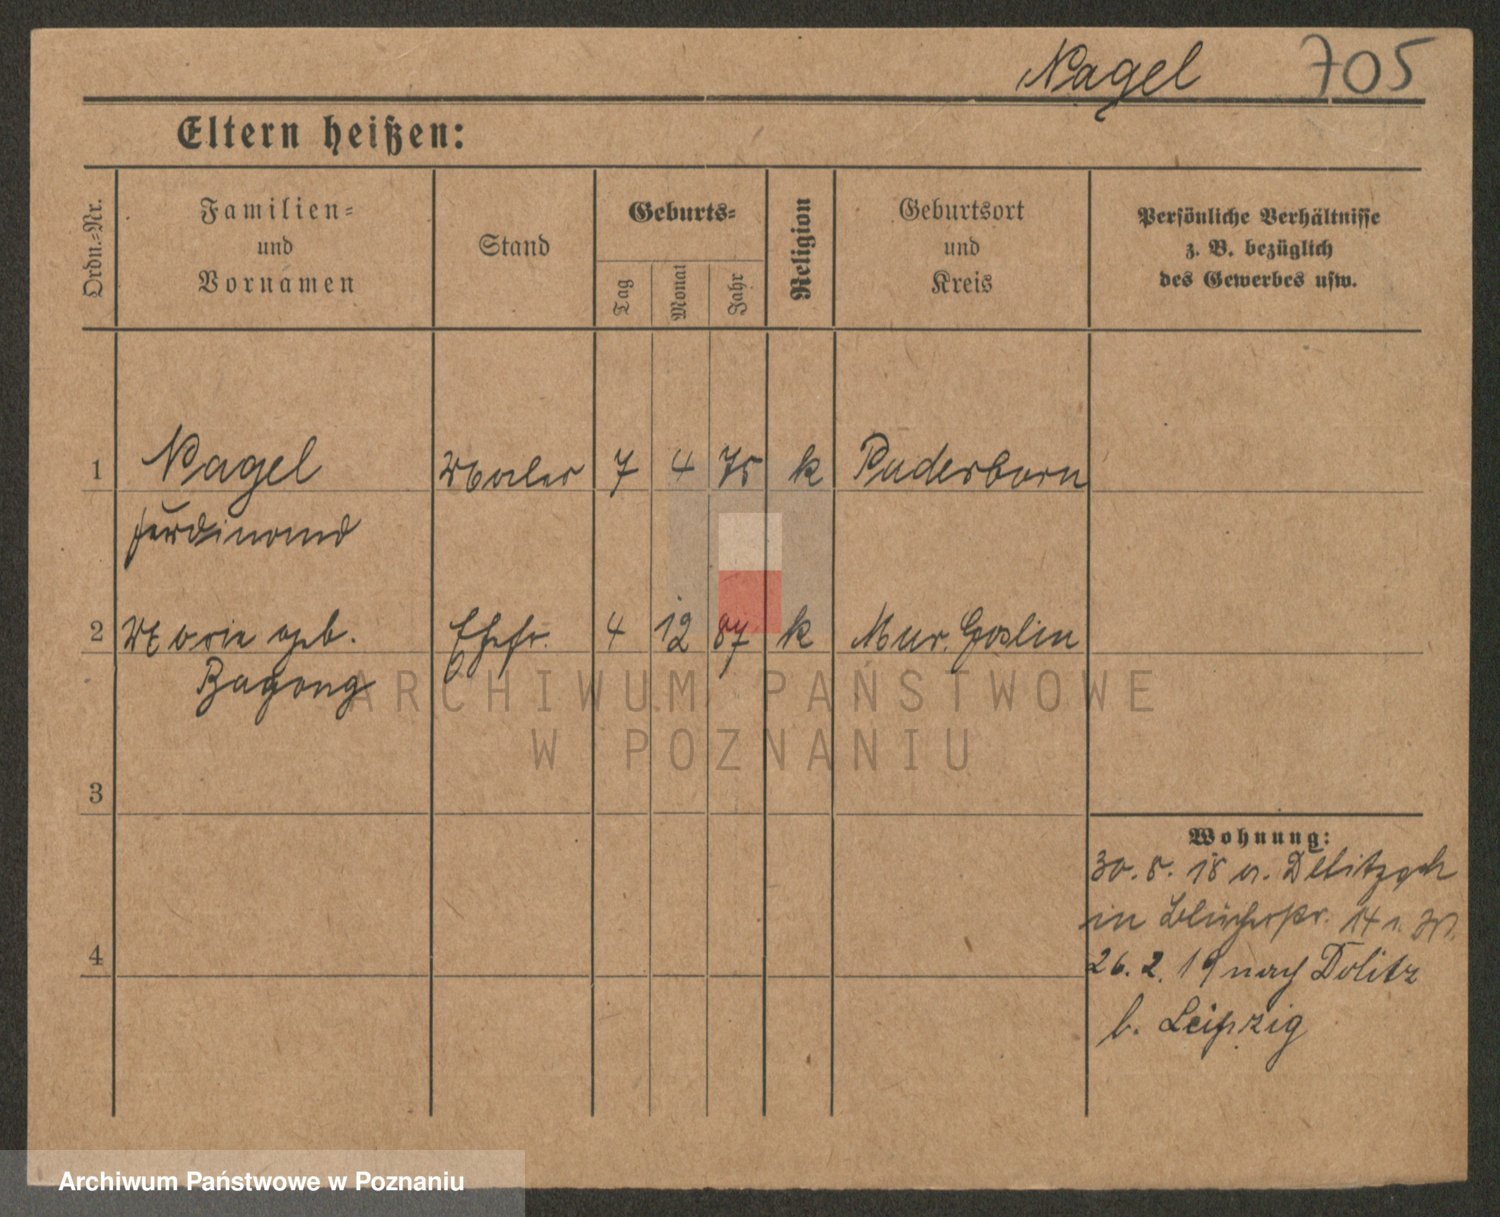 Nagel 705
Eltern heißen:
Ordn.-Nr.
Familien-
und
Vornamen
Stand
Geburts-
Tag
Monat
Jahr
Religion
Geburtsort
und
Kreis
Persönliche Verhältnisse
z. B. bezüglich
des Gewerbes usw.
1 Nagel Maler 7 4 75 k Paderborn
Ferdinand
2 Marie geb. Ehefr. 4 12 87 k Mur. Goslin
ARCHIWUM PAŃSTWOWE
W POZNANIU
3
Wohnung:
30. 5. 18 a. Delitzsch
in Blücherstr. 14
4
26. 2. 19 nach Dölitz
b. Leipzig
Archiwum Państwowe w Poznaniu